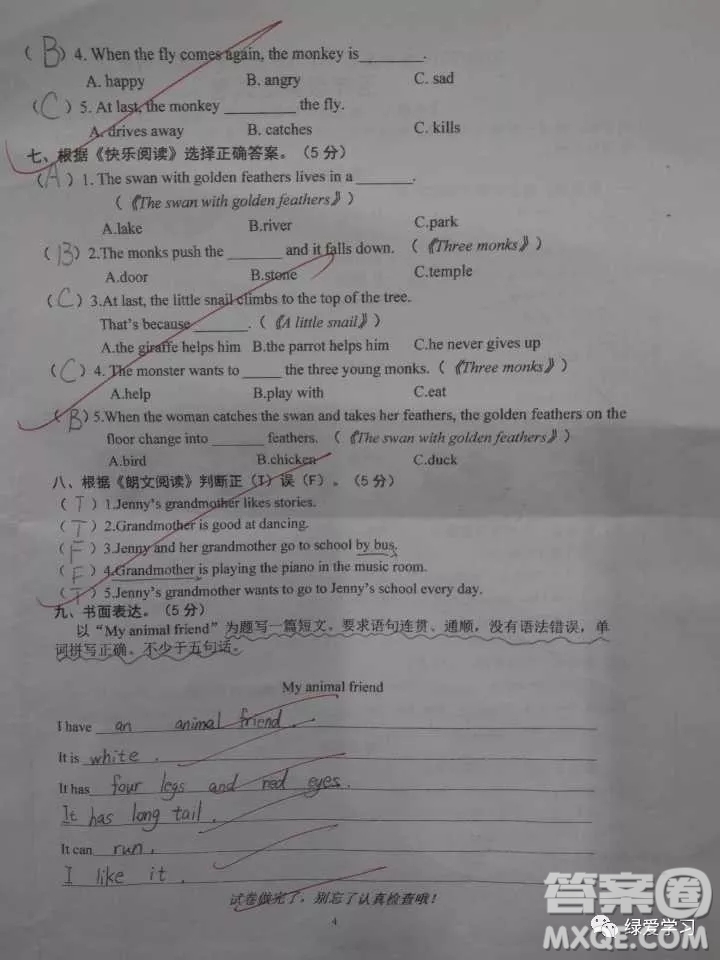 ( B ) 4. When the fly comes again, the monkey is________.
A. happy B. angry C. sad
( C ) 5. At last, the monkey ________ the fly.
A. drives away B. catches C. kills
七、根据《快乐阅读》选择正确答案。（5 分）
( A ) 1. The swan with golden feathers lives in a _______.
（《The swan with golden feathers》）
A.lake B.river C.park
( B ) 2.The monks push the _______ and it falls down. （《Three monks》）
A.door B.stone C.temple
( C ) 3.At last, the little snail climbs to the top of the tree.
That's because _______.（《A little snail》）
A.the giraffe helps him B.the parrot helps him C.he never gives up
( C ) 4. The monster wants to _____ the three young monks.（《Three monks》）
A.help B.play with C.eat
( B ) 5.When the woman catches the swan and takes her feathers, the golden feathers on the
floor change into _______ feathers. （《The swan with golden feathers》）
A.bird B.chicken C.duck
八、根据《朗文阅读》判断正（T）误（F）。（5 分）
( T ) 1.Jenny's grandmother likes stories.
( T ) 2.Grandmother is good at dancing.
( F ) 3.Jenny and her grandmother go to school by bus.
( F ) 4.Grandmother is playing the piano in the music room.
( T ) 5.Jenny's grandmother wants to go to Jenny's school every day.
九、书面表达。（5 分）
以“My animal friend”为题写一篇短文。要求语句连贯、通顺，没有语法错误，单
词拼写正确。不少于五句话。
My animal friend
I have an animal friend.
It is white.
It has four legs and red eyes.
It has long tail.
It can run.
I like it.
试卷做完了，别忘了认真检查哦！
4
答案圈
绿爱学习
MXQE.COM